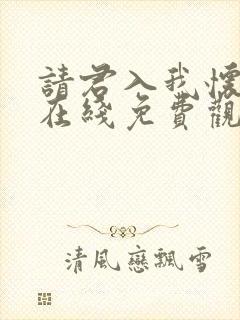 請君入我懷
在綫免費觀
清風戀飄雪